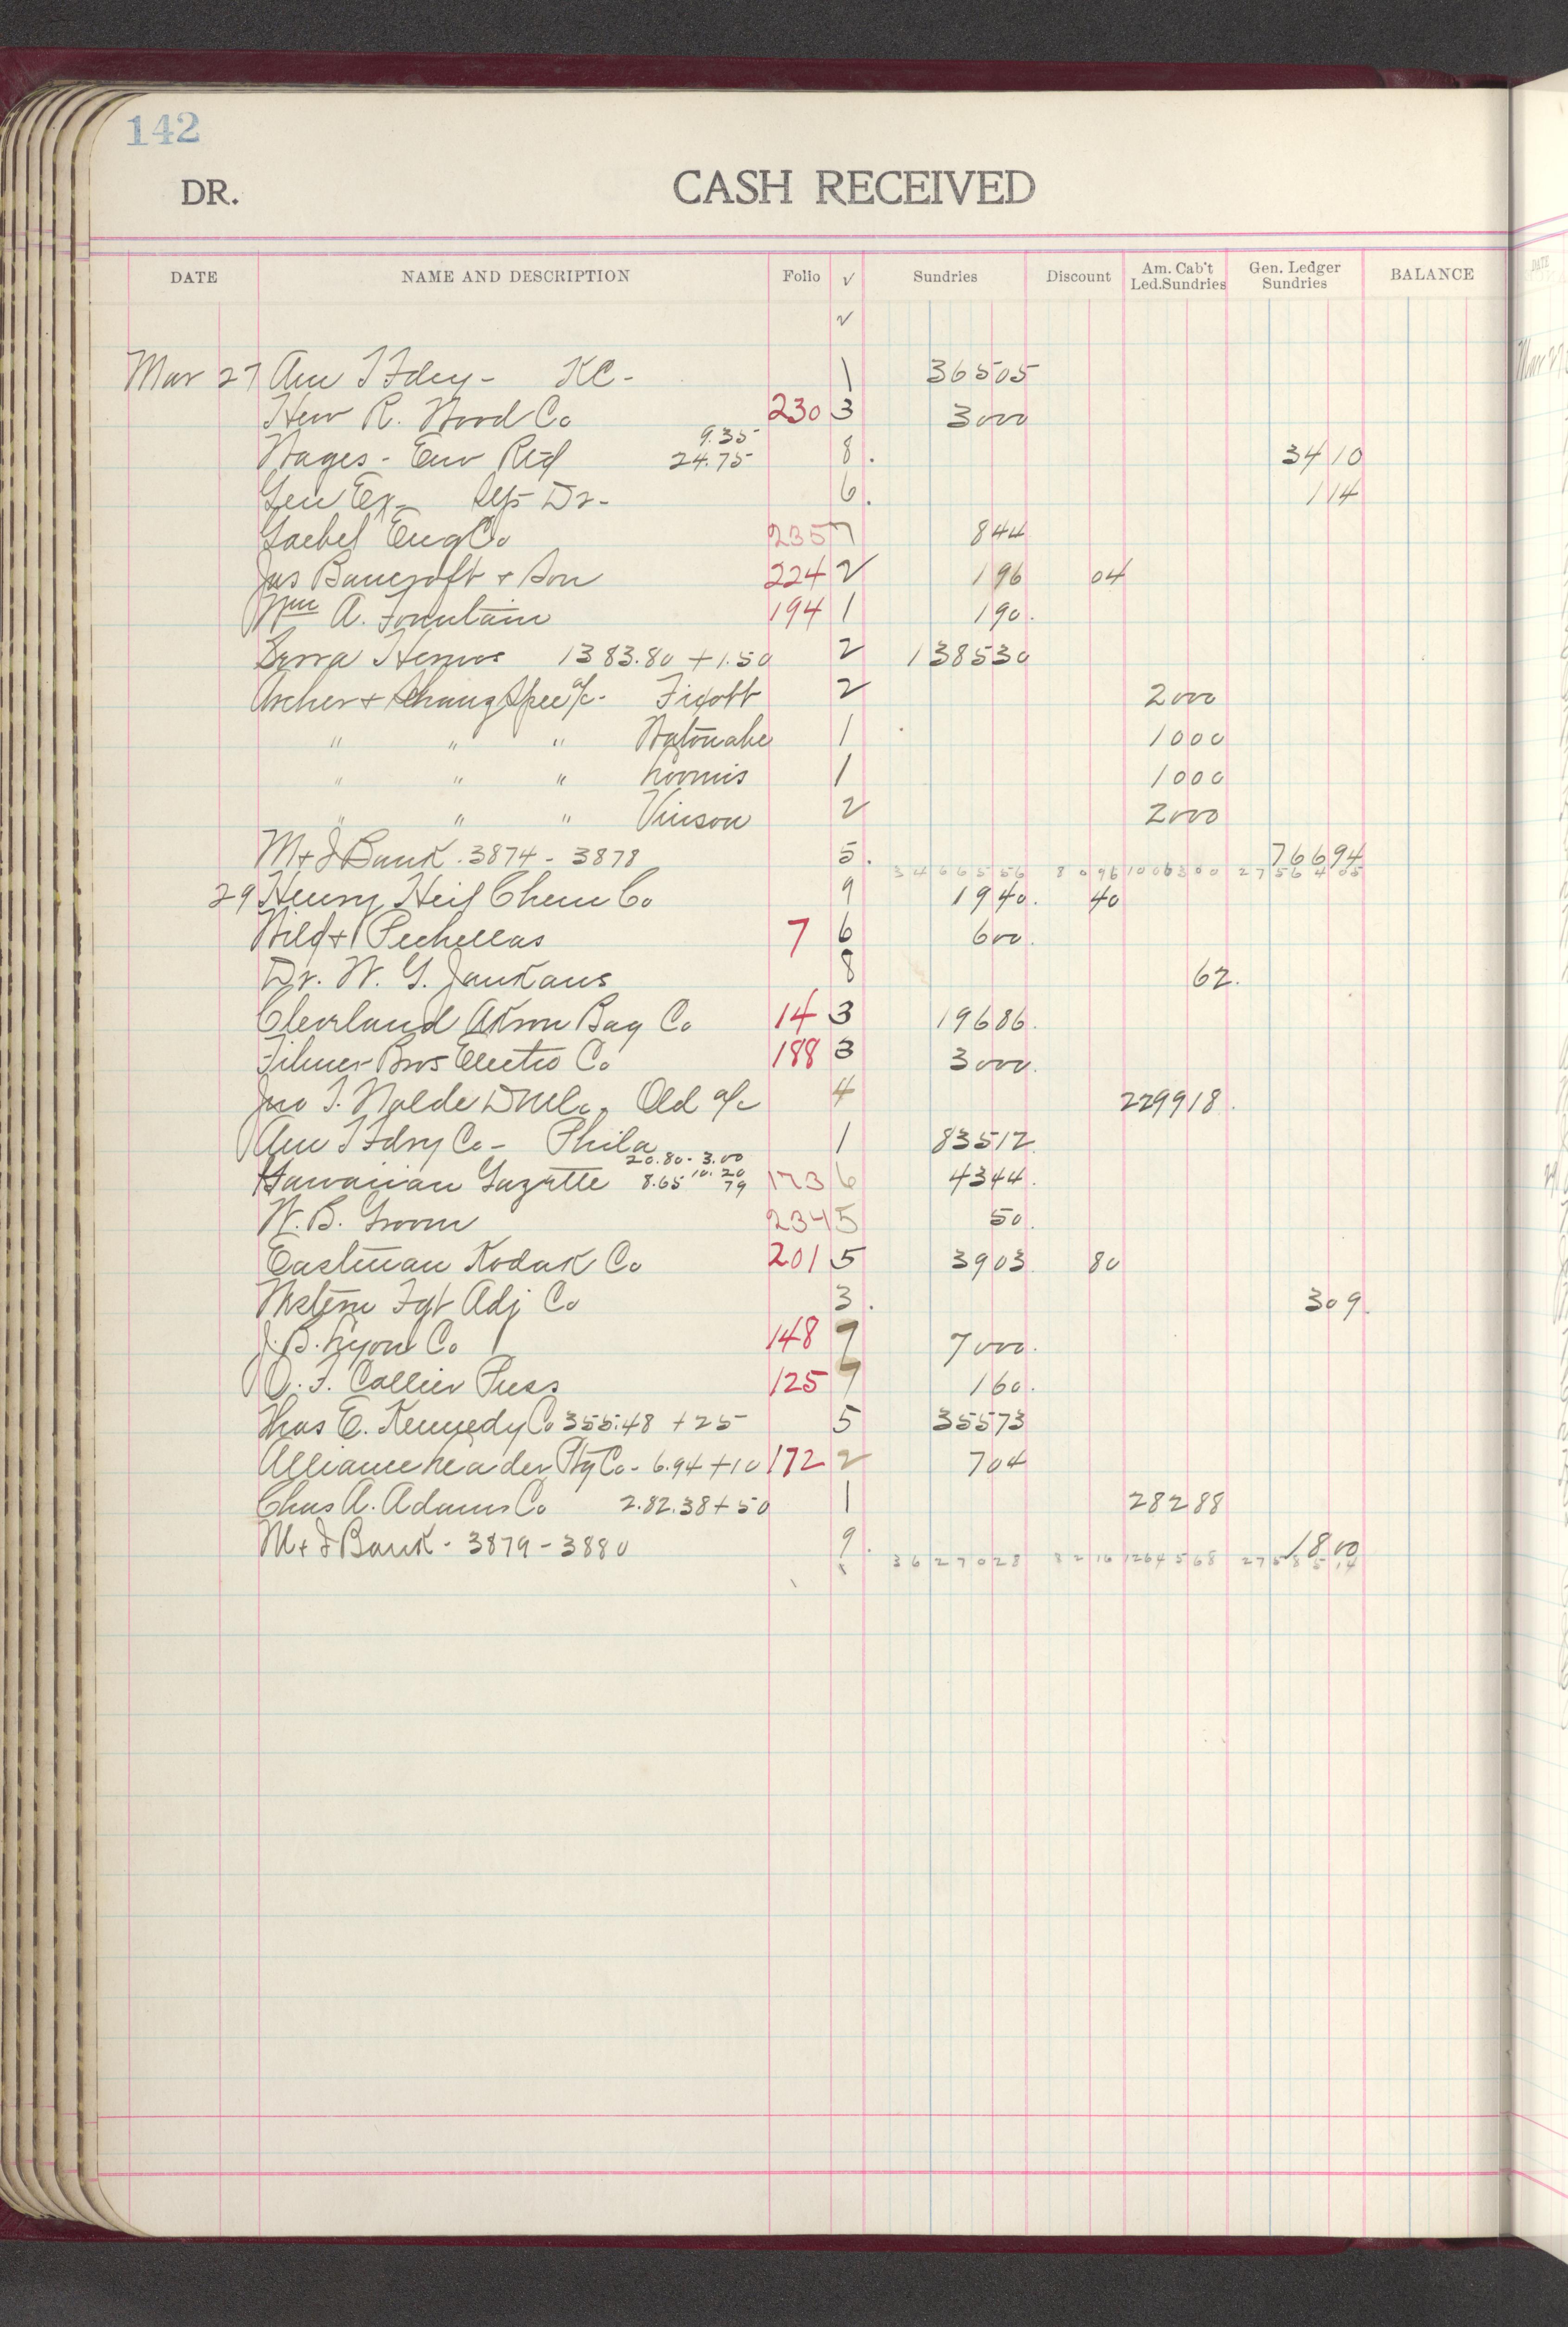 142
DR. CASH RECEIVED
DATE NAME AND DESCRIPTION Folio √ Sundries Discount Am. Cab't Led.Sundries Gen. Ledger Sundries BALANCE
√
Mar 27 Am T Fdry - KC - 1 365 05
R. Wood Co 230 3 30 00
Wages - Env 9.35 24.75 8. 34 10
Gen Ex - Dr - 6. 1 14
Gaebel Eng Co 235 7 8 44
Jas Bancroft + Son 224 2 1 96 04
Wm A. Fountain 194 1 1 90.
Serra Hermos 1383.80 + 1.50 2 1385 30
Archer + Spec a/c - 2 20 00
" " " Watonabe 1 10 00
" " " Loomis 1 10 00
" " " Vinson 2 20 00
M + J Bank . 3874 - 3878 5. 766 94
34665 56 80 96 10063 00 2756 4 05
29 Henry Heil Chem Co 9 19 40. 40
Wild + 7 6 6 00.
Dr. W. G. Jankaus 8 62.
Cleveland Akron Bag Co 14 3 196 86.
Filmer Bros Electro Co 188 3 30 00.
Jno T. Nolde D Mfg. Old a/c 4 2299 18.
Am T Fdry Co - Phila 1 835 12.
Hawaiian Gazette 20.80 - 3.00 8.65 10.20 79 173 6 43 44.
W. B. Groom 234 5 50.
Eastman Kodak Co 201 5 39 03. 80
Western Fgt Adj Co 3. 3 09.
J. B. Lyon Co 148 9 70 00.
P. F. Collier Press 125 9 1 60.
Thos E. Kennedy Co 355.48 + 25 5 355 73
Alliance Leader Ptg Co - 6.94 + 10 172 2 7 04
Chas A. Adams Co 2.82.38 + 50 1 282 88
M + J Bank - 3879 - 3880 9. 18 00
36270 28 82 16 12645 68